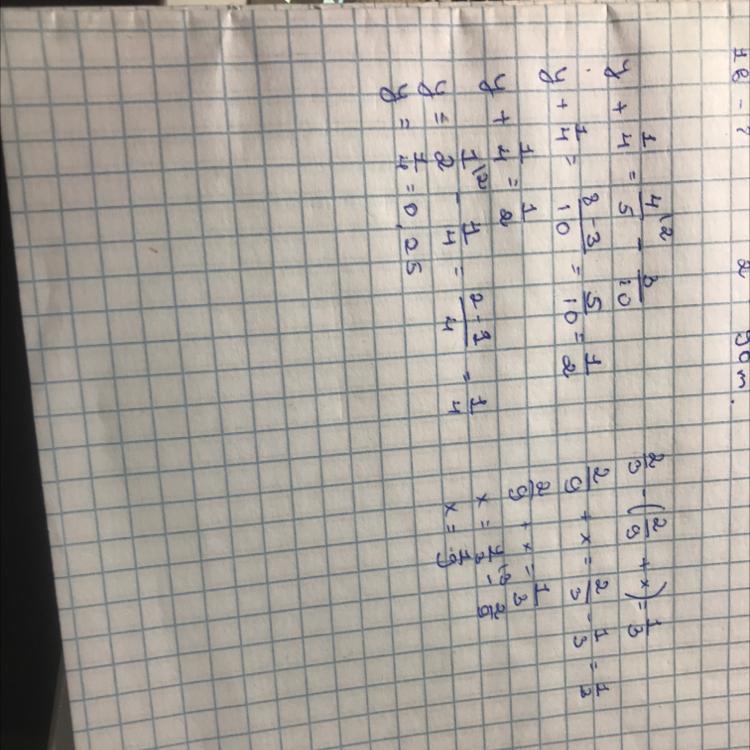 y + 1/4 = 4\2/5 - 3/10
y + 1/4 = 8-3/10 = 5/10 = 1/2
y + 1/4 = 1/2
y = 1\2/2 - 1/4 = 2-1/4 = 1/4
y = 1/4 = 0,25
2/3 - (2/9 + x) = 1/3
2/9 + x = 2/3 - 1/3 = 1/3
2/9 + x = 1/3
x = 1\3/3 - 2/9
x = 1/9